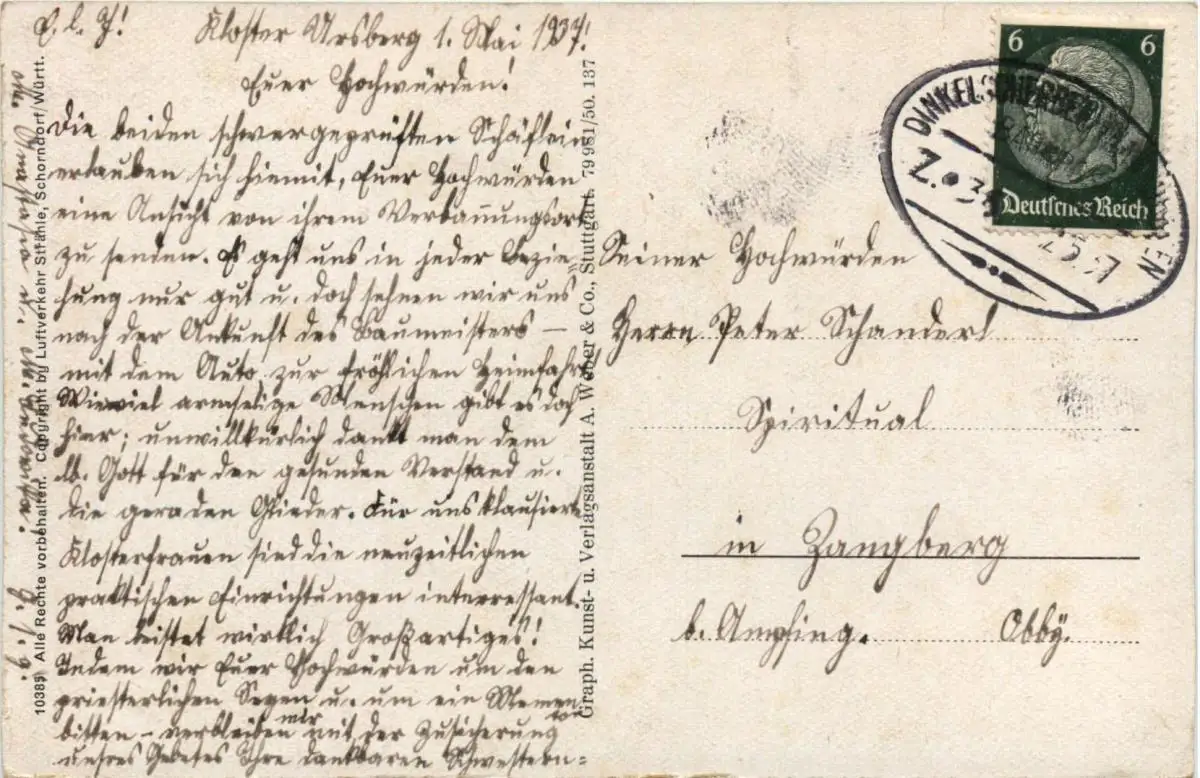 G. l. J! Kloster Ursberg 1. Mai 1937!
Euer Hochwürden!
Die beiden schwergeprüften Schäflein
erlauben sich hiemit, Euer Hochwürden
eine Ansicht von ihrem Verbannungsort
zu senden. Es geht uns in jeder Bezie
hung nur gut u. doch sehnen wir uns
nach der Ankunft des Baumeisters —
mit dem Auto zur fröhlichen Heimfahrt
Wieviel armselige Menschen gibt es doch
hier; unwillkürlich dankt man dem
lb. Gott für den gesunden Verstand u.
die geraden Glieder. Für uns klausierte
Klosterfrauen sind die neuzeitlichen
praktischen Einrichtungen interressant.
Man leistet wirklich Großartiges!
Indem wir Euer Hochwürden um den
priesterlichen Segen u. um ein Memen
bitten – verbleiben wir mit der Zusicherung
unsres Gebetes Ihre dankbaren Schwestern:
10385) Alle Rechte vorbehalten. Copyright by Luftverkehr Strähle, Schorndorf/Württ.
Graph. Kunst- u. Verlagsanstalt A. Weber & Co., Stuttgart. 79981/50. 137
6 6
Deutsches Reich
Z.
Seiner Hochwürden
Herrn Peter Schanderl
Spiritual
in Zangberg
b. Ampfing. Obby.